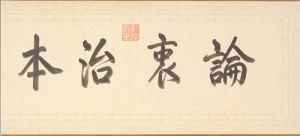 論衷治本